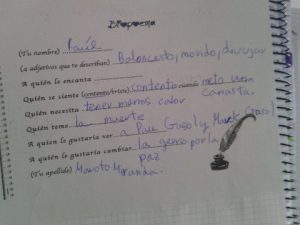 Biopoema
(Tu nombre) Raúl
(2 adjetivos que te describan) Baloncesto, movido, divujar
A quién le encanta
Quién se siente (contento/triste) cuando contento meto una
canasta.
Quién necesita tener menos calor
Quién teme la muerte
A quien le gustaría ver a Pau Gasol y Mark Gasol
A quien le gustaría cambiar la genso por la
paz
(Tu apellido) Maroto Miranda.